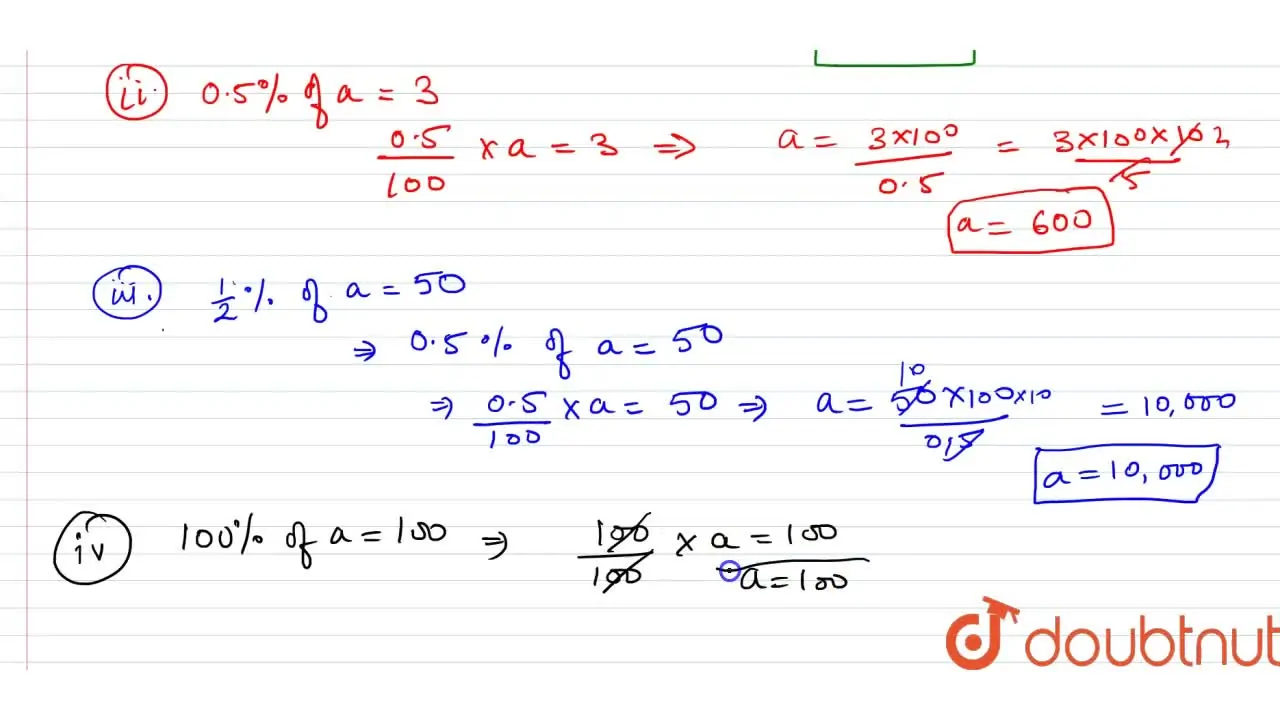 ii. 0.5% of a = 3
0.5/100 × a = 3 ⇒ a = 3×100/0.5 = 3×100×10 2/5
a = 600
iii. 1/2 % of a = 50
⇒ 0.5% of a = 50
⇒ 0.5/100 × a = 50 ⇒ a = 50 10 ×100×10/0.5 = 10,000
a = 10,000
iv 100% of a = 100 ⇒ 100/100 × a = 100
a = 100
doubtnut